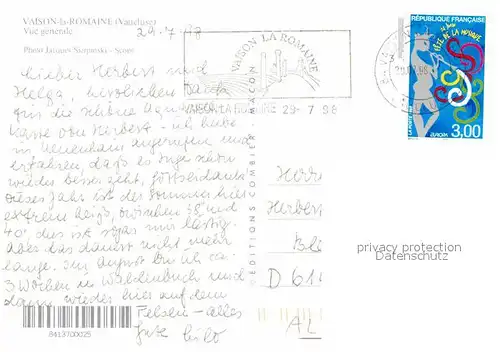 VAISON-la-ROMAINE (Vaucluse)
Vue générale
29-7-98
Photo Jacques Sierpinski - Scope
VAISON LA ROMAINE
VAISON LA ROMAINE 29-7-98
RÉPUBLIQUE FRANÇAISE
FÊTE DE LA MUSIQUE
LA POSTE
EUROPA
3,00
Lieber Herbert und
Helga, herzlichen Dank
für die schöne
Karte von Herbert - ich habe
in angerufen und
erfahren, daß es Inge schon
wieder besser geht, Gottseidank
Dieses Jahr ist der Sommer hier
extrem heiß, zwischen 38° und
40° dies ist sogar uns lästig.
Aber das dauert nicht mehr
lange. Im August bin ich ca.
3 Wochen in Waldenbuch und
dann wieder hier auf dem
Felsen - alles
Gute
EDITIONS COMBIER MACON
Herrn
Herbert
D 611
AL
privacy protection
Datenschutz
8413700025